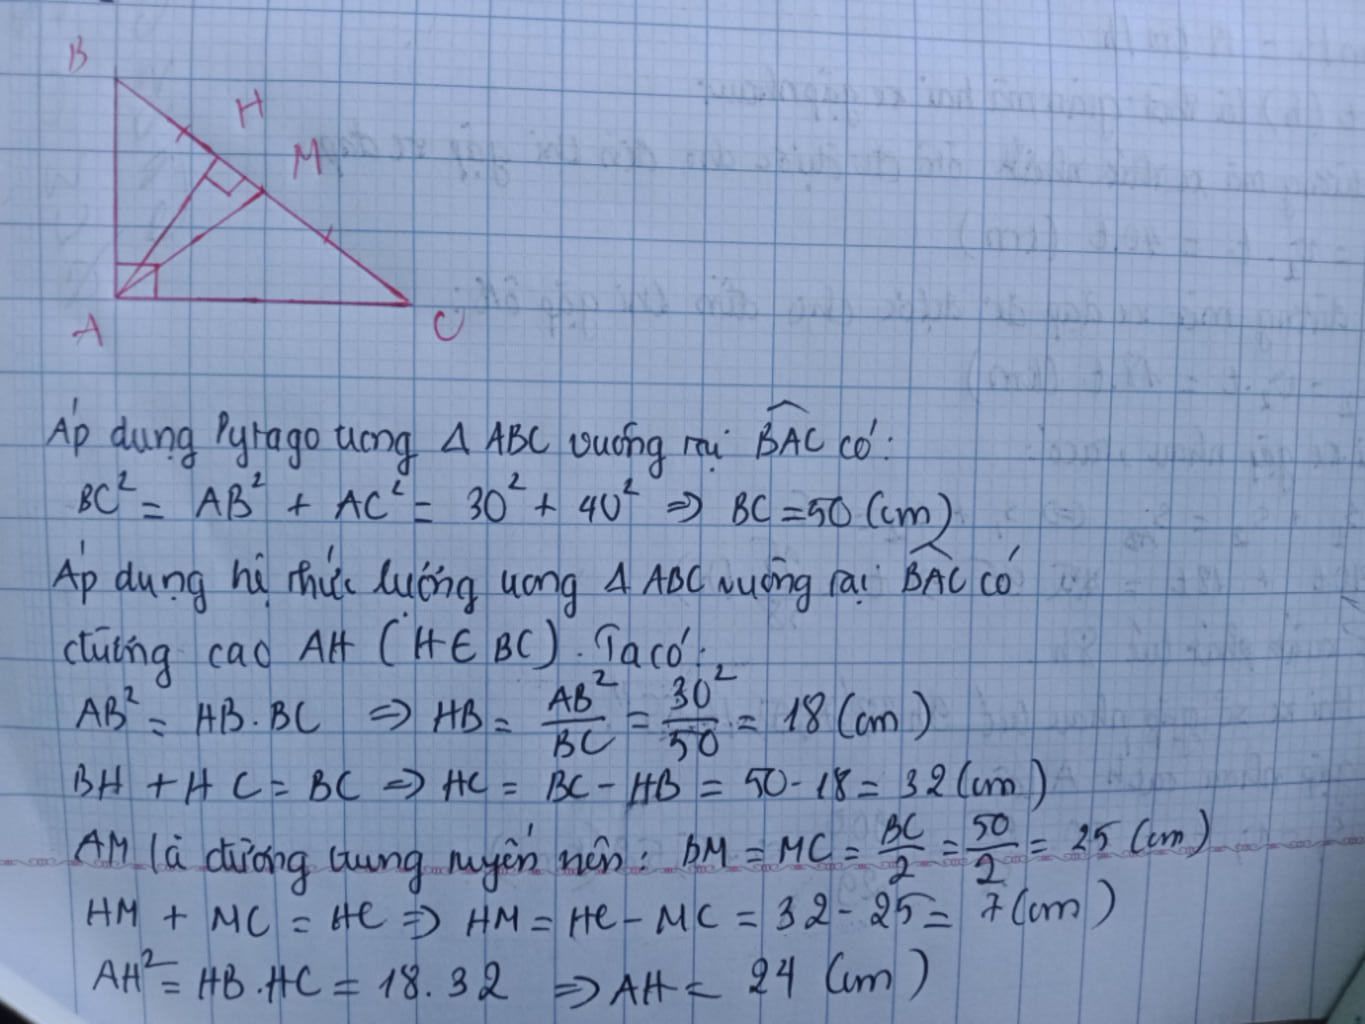 B
H
M
A
C
Áp dụng Pytago trong Δ ABC vuông tại \widehat{BAC} có:
BC² = AB² + AC² = 30² + 40² ⇒ BC = 50 (cm)
Áp dụng hệ thức lượng trong Δ ABC vuông tại \widehat{BAC} có
đường cao AH (H ∈ BC). Ta có:
AB² = HB.BC ⇒ HB = AB²/BC = 30²/50 = 18 (cm)
BH + HC = BC ⇒ HC = BC - HB = 50 - 18 = 32 (cm)
AM là đường trung tuyến nên: BM = MC = BC/2 = 50/2 = 25 (cm)
HM + MC = HC ⇒ HM = HC - MC = 32 - 25 = 7 (cm)
AH² = HB.HC = 18.32 ⇒ AH = 24 (cm)